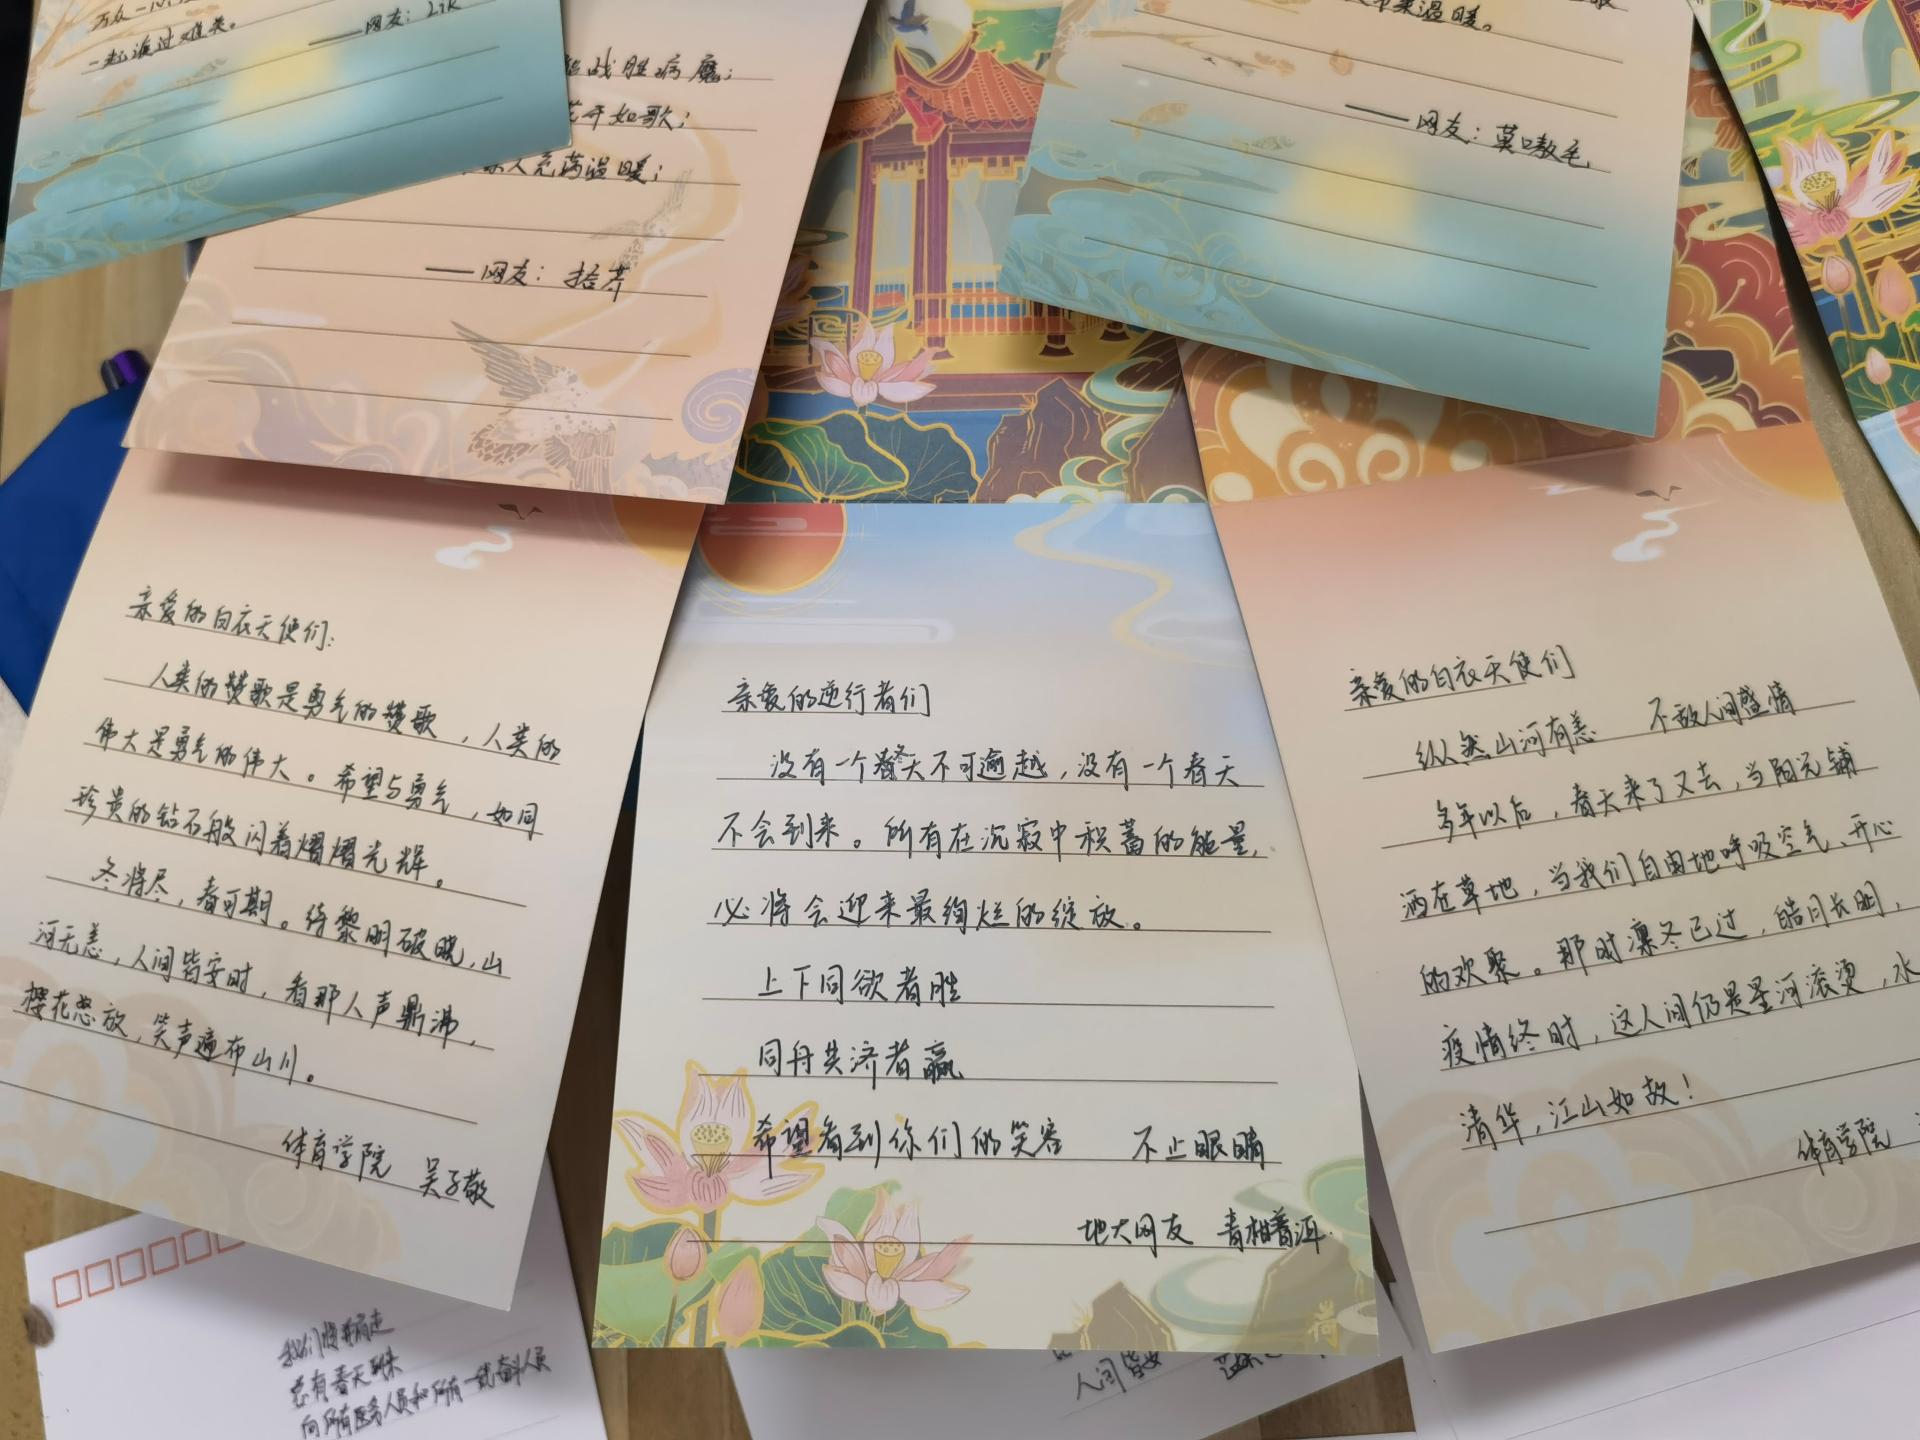 一起渡过难关。
——网友：LZK
战胜病魔；
花开如歌；
人充满温暖；
——网友：拾芥
来温暖。
——网友：莫口敖毛
亲爱的白衣天使们：
人类的赞歌是勇气的赞歌，人类的
伟大是勇气的伟大。希望与勇气，如同
珍贵的钻石般闪着熠熠光辉。
冬将尽，春可期。待黎明破晓，山
河无恙，人间皆安时，看那人声鼎沸，
樱花怒放，笑声遍布山川。
体育学院 吴子敬
亲爱的逆行者们
没有一个冬天不可逾越，没有一个春天
不会到来。所有在沉寂中积蓄的能量，
必将会迎来最绚烂的绽放。
上下同欲者胜
同舟共济者赢
希望看到你们的笑容 不止眼睛
地大网友 青柑普洱
亲爱的白衣天使们
纵然山河有恙 不敌人间盛情
多年以后，春天来了又去，当阳光铺
洒在草地，当我们自由地呼吸空气、开心
的欢聚。那时凛冬已过，皓月长明，
疫情终时，这人间仍是星河滚烫，水
清华，江山如故！
体育学院
总有春天到来
向所有医务人员和所有一线奋斗人员
人间皆安